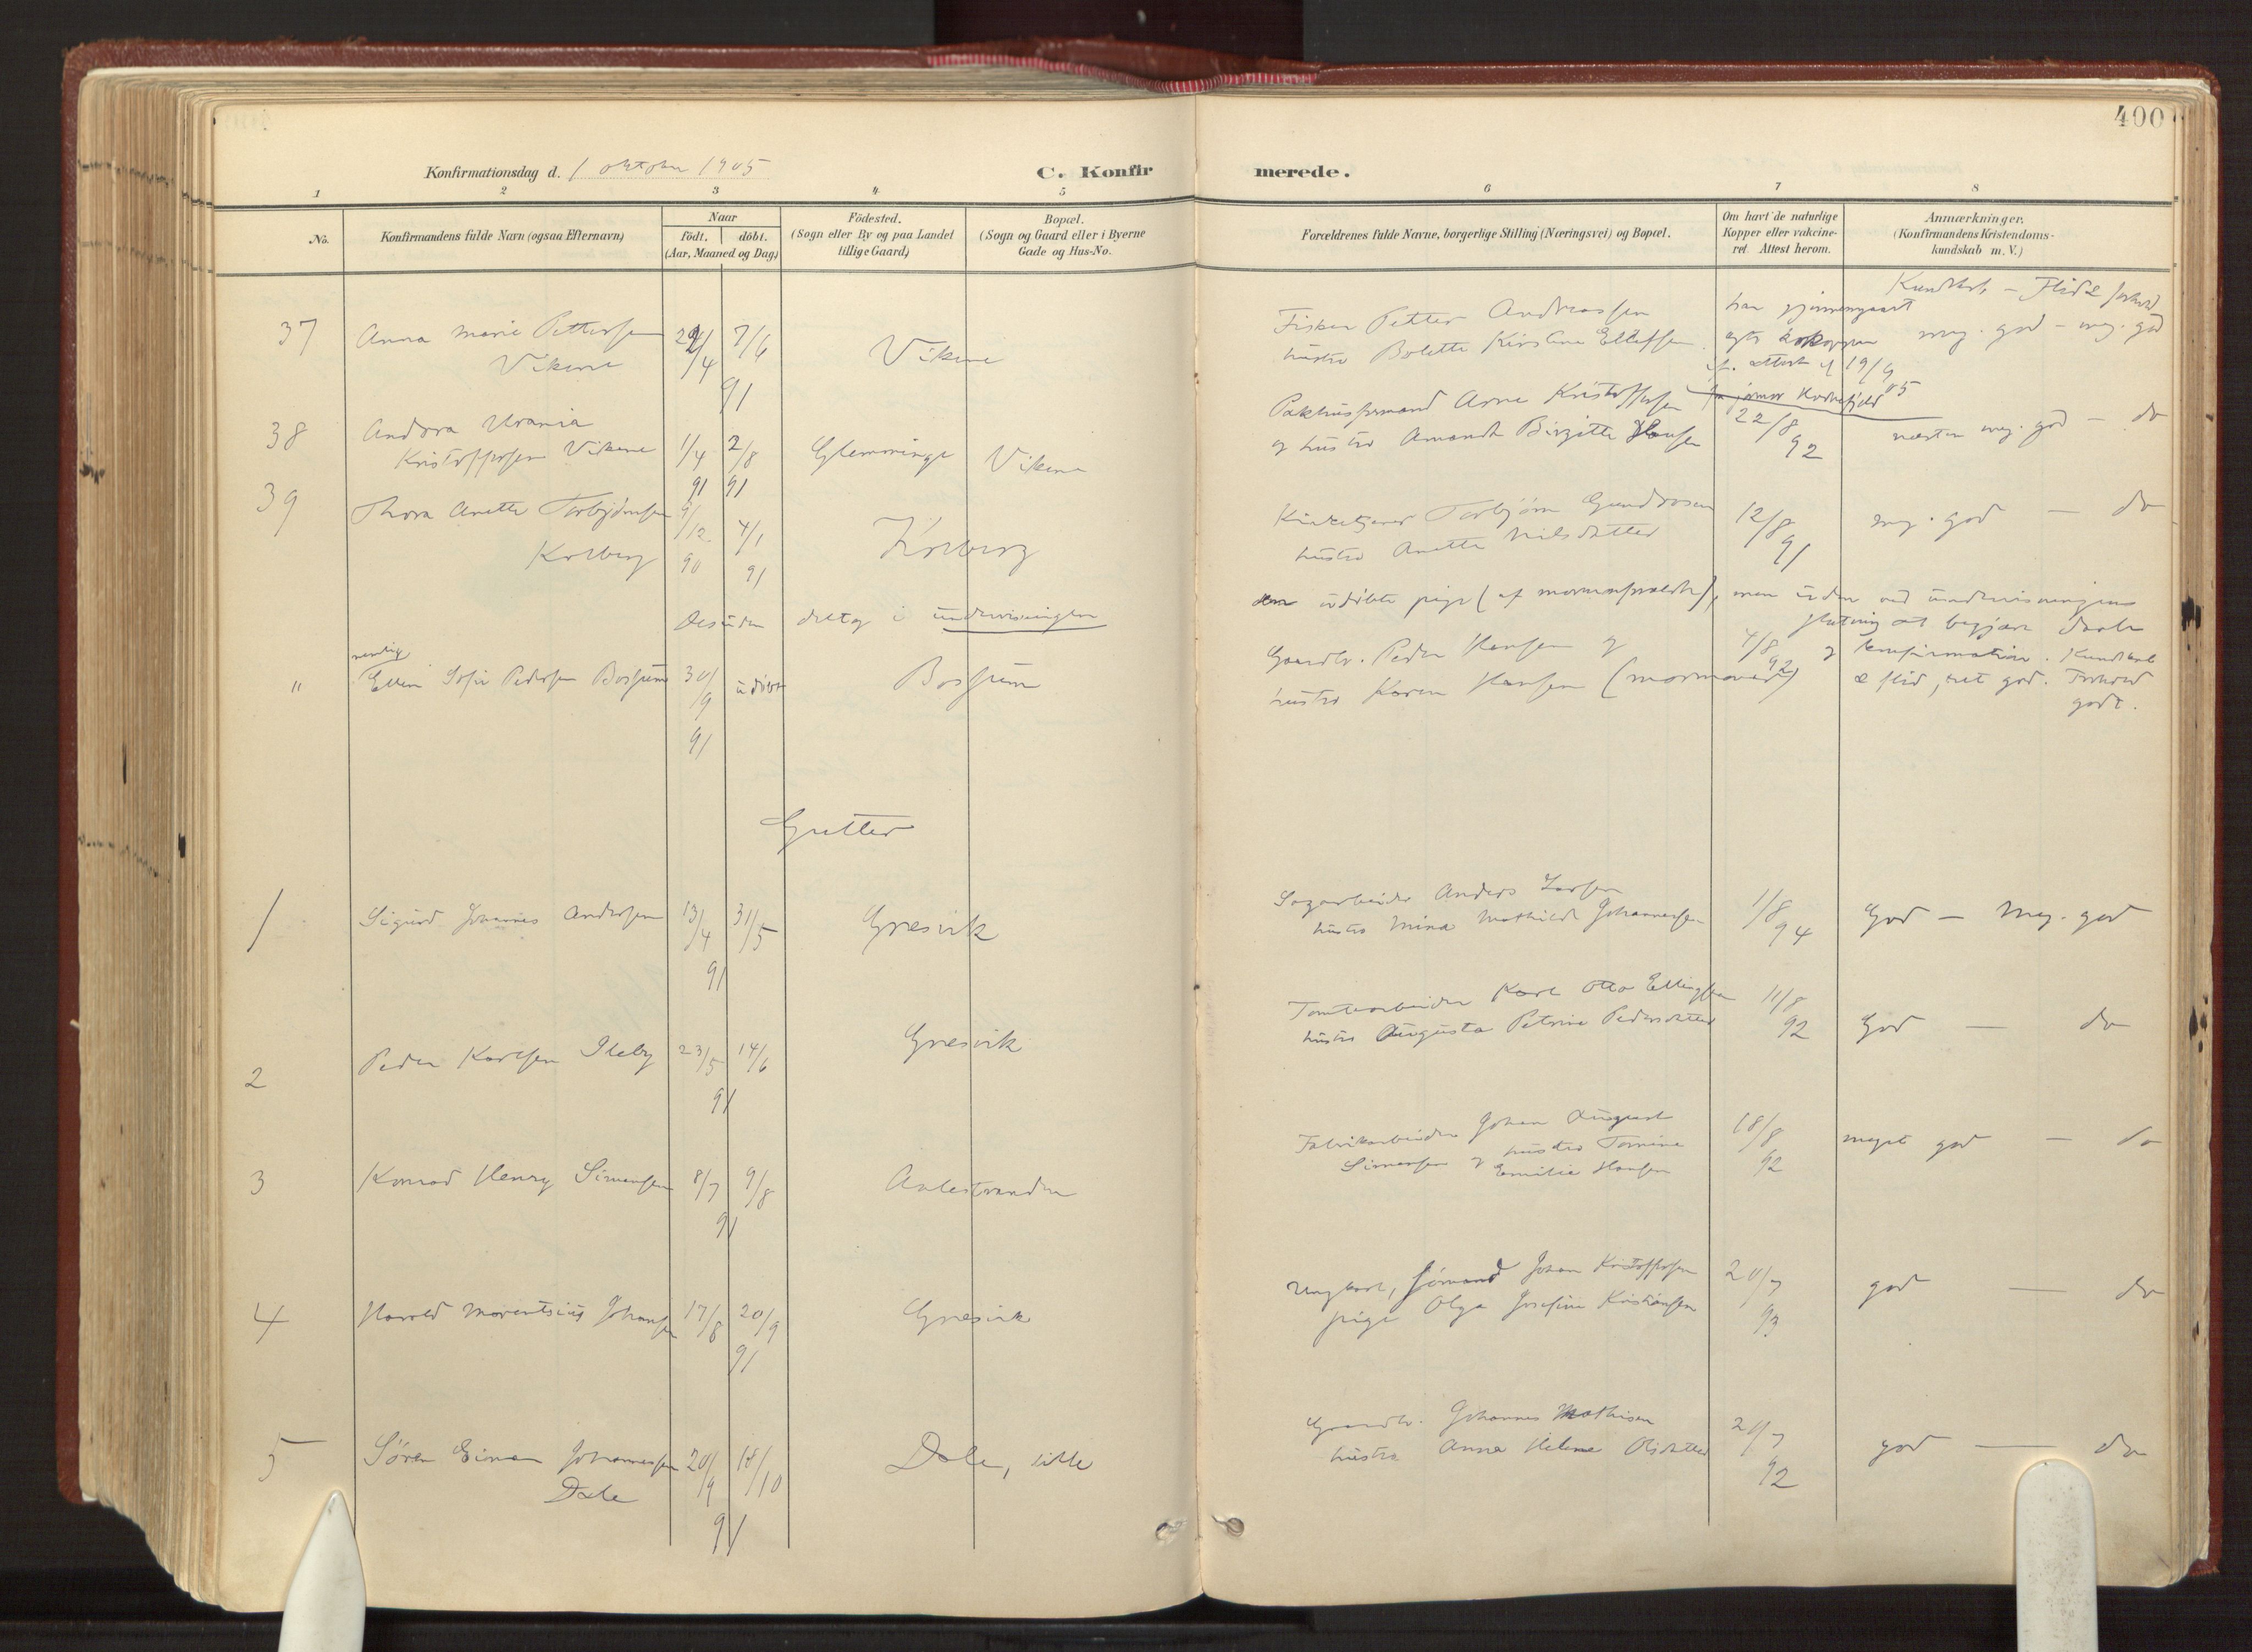 400
Konfirmationsdag d. 1 oktober 1905
C. Konfirmerede.
1 2 3 4 5 6 7 8
No.
Konfirmandens fulde Navn (ogsaa Efternavn)
Naar
födt. döbt.
(Aar, Maaned og Dag.)
Födested.
(Sogn eller By og paa Landet
tillige Gaard.)
Bopæl.
(Sogn og Gaard eller i Byerne
Gade og Hus-No.
Forældrenes fulde Navne, borgerlige Stilling (Næringsvei) og Bopæl.
Om havt de naturlige
Kopper eller vakcine-
ret. Attest herom.
Anmærkninger.
(Konfirmandens Kristendoms-
kundskab m. V.)
Kundskab – Flid & forhold
37 Anna Marie Pettersen 7/6 Vikene
Vikene /4 91
Fisker Petter Andreassen
hustru Bolette Kirstine Ellefsen
har gjennemgaaet
ægte kokopper
if. attest af 19/9 05
meg. god – meg. god
38 Andora Urania
Kristoffersen Vikene 1/4 91 2/8 91 Glemminge Vikene
Pakhusformand Arne Kristoffersen
og hustru Amanda Birgitte Hansen
22/8 92
næsten meg. god – do
39 Thora Anette Torbjørnsen
Kolberg 9/12 90 4/1 91
Kirketjener Torbjørn Gundersen
hustru Anette Nilsdatter
12/8 91
meg. god – do
Desuden deltog i undervisningen
udøbte pige (af mormonforældre), men uden ved undervisningens
slutning at begjære daab
og konfirmation. Kundskab
& flid, ret god. Forhold
godt.
nemlig
" Ellen Sofie Pedersen Bossum 30/9 91 udöbt Bossum
Gaardbr. Peder Hansen og
hustru Karen Hansen (mormoner)
4/8 92
Gutter
1 Sigurd Johannes Andersen 13/4 31/5 91 Gresvik
Sagarbeider Anders Larsen
hustru Mina Mathilde Johannessen
1/8 94
God – Meg. god
2 Peder Karlsen Ileby 23/5 14/6 91 Gresvik
Tomtearbeider Karl Otto Ellingsen
hustru Augusta Petrine Pedersdatter
11/8 92
God – do
3 Konrad Henry Simensen 8/7 9/8 91 Aalestranden
Fabrikarbeider Johan August
Simensen og hustru Tomine
Emilie Hansen
18/8 92
meget god – do
4 Harald Morentsius Johansen 17/8 20/9 91 Gresvik
Ungkarl, sömand Johan Kristoffersen
pige Olga Josefine Kristiansen
20/7 93
god – do
5 Sören Einar Johannessen
Dale 20/9 18/10 91 Dale, lille
Gaardbr. Johannes Mathisen
hustru Anna Helene Olsdatter
20/7 92
god – do